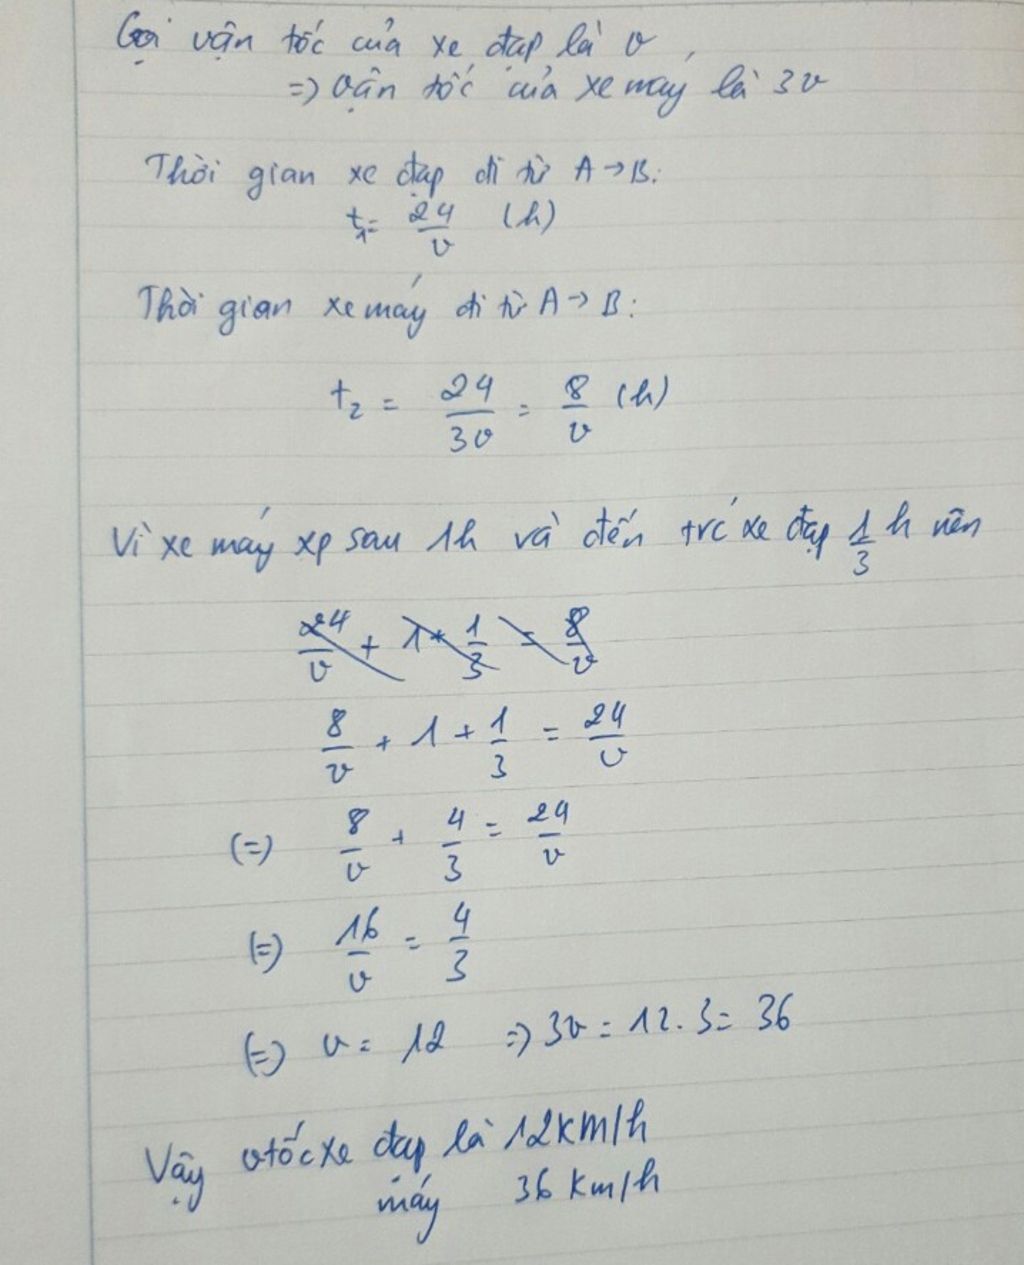 Gọi vận tốc của xe đạp là v,
=> vận tốc của xe máy là 3v
Thời gian xe đạp đi từ A → B:
t₁ = 24/v (h)
Thời gian xe máy đi từ A → B:
t₂ = 24/3v = 8/v (h)
Vì xe máy xp sau 1h và đến trc xe đạp 1/3 h nên
24/v + 1 + 1/3 = 8/v
8/v + 1 + 1/3 = 24/v
(=) 8/v + 4/3 = 24/v
(=) 16/v = 4/3
(=) v = 12 => 3v = 12.3 = 36
Vậy vtốc xe đạp là 12km/h
máy 36 km/h